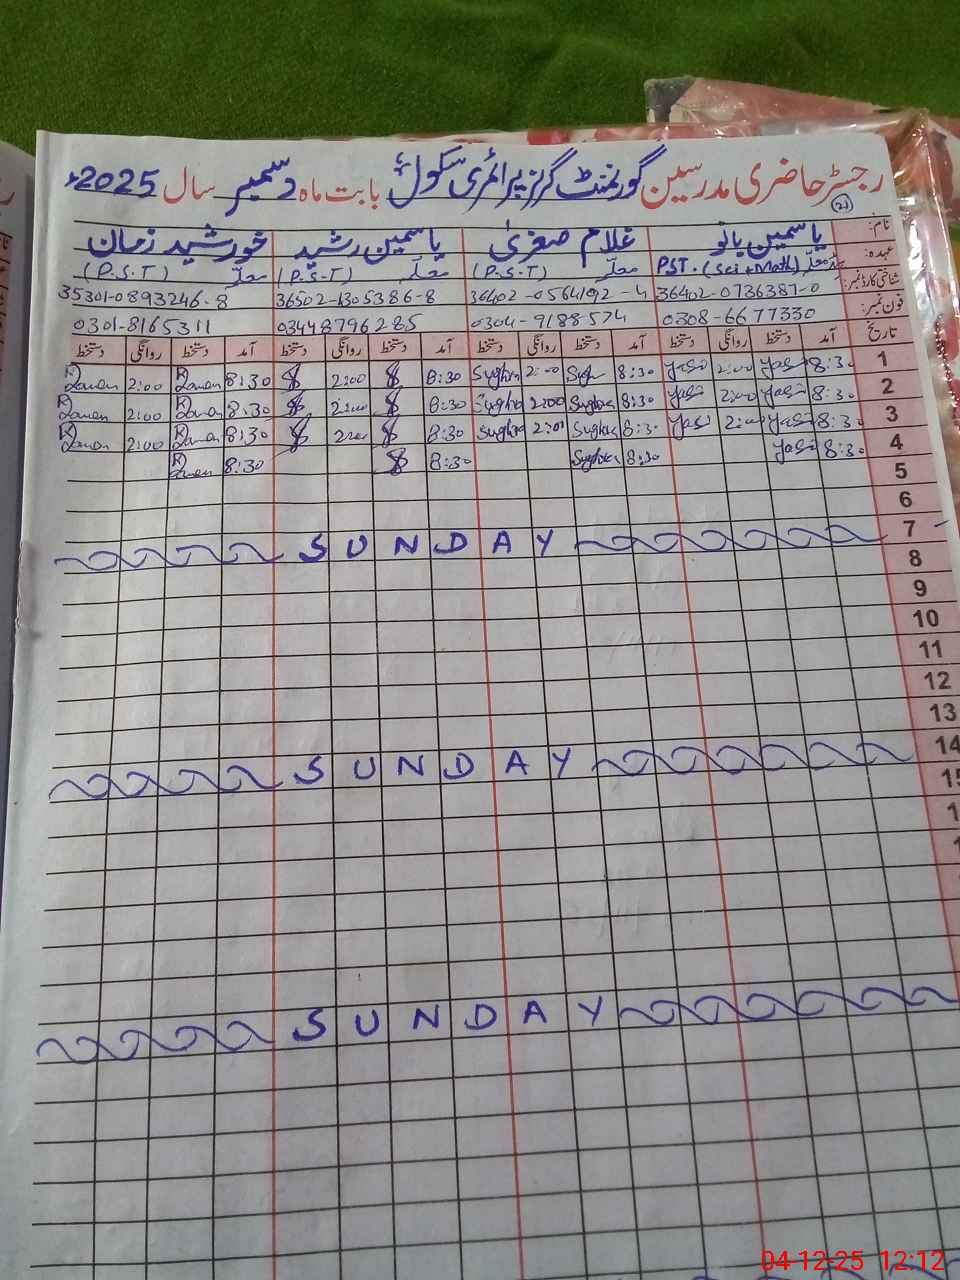 رجسٹر حاضری مدرسین گورنمنٹ گرلز پرائمری سکول بابت ماہ دسمبر سال 2025ء
(21)
نام: یاسمین بانو غلام صغریٰ یاسمین رشید خورشید زمان
عہدہ: معلّمہ PST. (Sci + Math) معلّمہ (P.S.T) معلّمہ (P.S.T) معلّمہ (P.S.T)
شناختی کارڈ نمبر: 36402-0736387-0 36402-0564192-4 36502-1305386-8 35301-0893246-8
فون نمبر: 0308-6677330 0304-9188574 03448796285 0301-8165311
تاریخ آمد دستخط روانگی دستخط آمد دستخط روانگی دستخط آمد دستخط روانگی دستخط آمد دستخط روانگی دستخط
1 8:30 Yasi 2:00 Yasi 8:30 Sugh 2:00 Sughra 8:30 2:00 8:30 R Zaman 2:00 R Zaman
2 8:30 Yasi 2:00 Yasi 8:30 Sughra 2:00 Sughra 8:30 2:00 8:30 R Zaman 2:00 R Zaman
3 8:30 Yasi 2:00 Yasi 8:30 Sughra 2:00 Sughra 8:30 2:00 8:30 R Zaman 2:00 R Zaman
4 8:30 Yasi 8:30 Sughra 8:30 8:30 R Zaman
5
6
7 SUNDAY
8
9
10
11
12
13
14 SUNDAY
15
SUNDAY
04-12-25 12:12